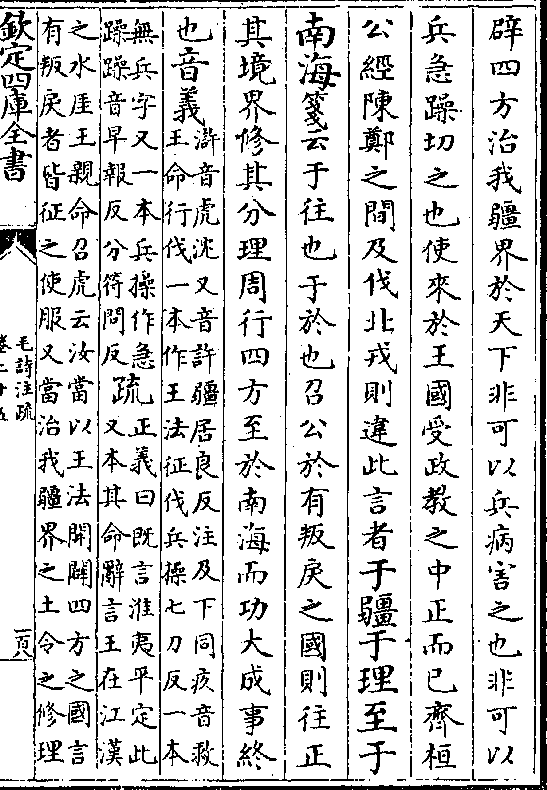 辟四方治我疆界於天下非可以兵病害之也非可以
兵急躁切之也使來於王國受政教之中正而已齊桓
公經陳鄭之間及伐北戎則違此言者于疆于理至于
南海箋云于往也于於也召公於有叛戾之國則往正
其境界修其分理周行四方至於南海而功大成事終
也音義
滸音虎沈又音許疆居良反注及下同疚音救
王命行伐一本作王法征伐兵操七刀反一本
無兵字又一本兵操作急
躁躁音早報反分符問反
疏
正義曰既言淮夷平定此
又本其命辭言王在江漢
之水厓王親命召虎云汝當以王法開闢四方之國言
有叛戾者皆征之使服又當治我疆界之土令之修理
欽定四庫全書
毛詩注疏
卷二十五